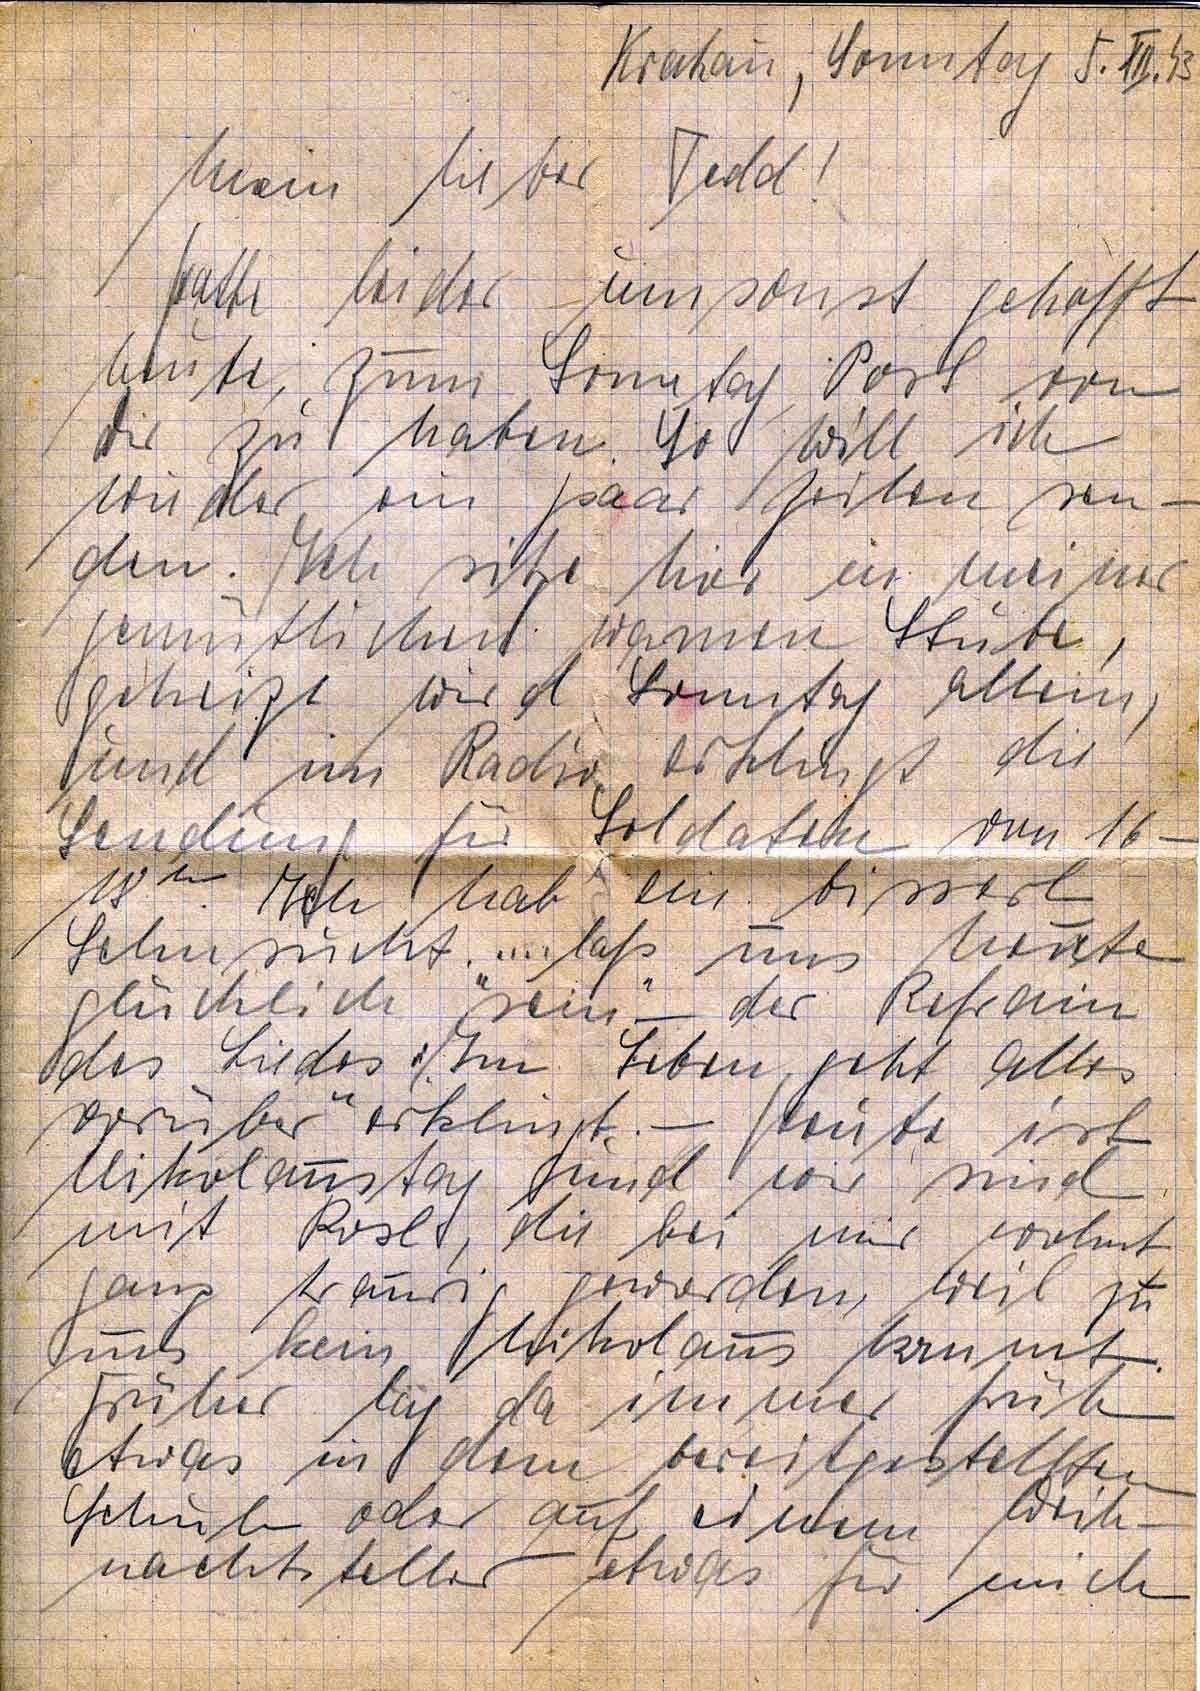 Krakau, Sonntag 5. XII. 43
Mein lieber Tedd!
Hatte leider umsonst gehofft
heute, zum Sonntag Post von
dir zu haben. So will ich
wieder ein paar Zeilen sen-
den. Ich sitze hier in meiner
gemütlichen warmen Stube,
geheizt wird Sonntag allein,
und im Radio erklingt die
Sendung für Soldaten von 16-
18h. Ich hab ein bisserl
Sehnsucht. "...laß uns heute
glücklich "sein" - der Refrain
des Liedes "Im Leben geht alles
vorüber" erklingt. - Heute ist
Nikolaustag und wir sind
mit Rosl, die bei mir wohnt
ganz traurig geworden, weil zu
uns kein Nikolaus kommt.
Früher lag da immer früh
etwas in dem bereitgestellten
Schuh oder auf einem Weih-
nachtsteller etwas für mich